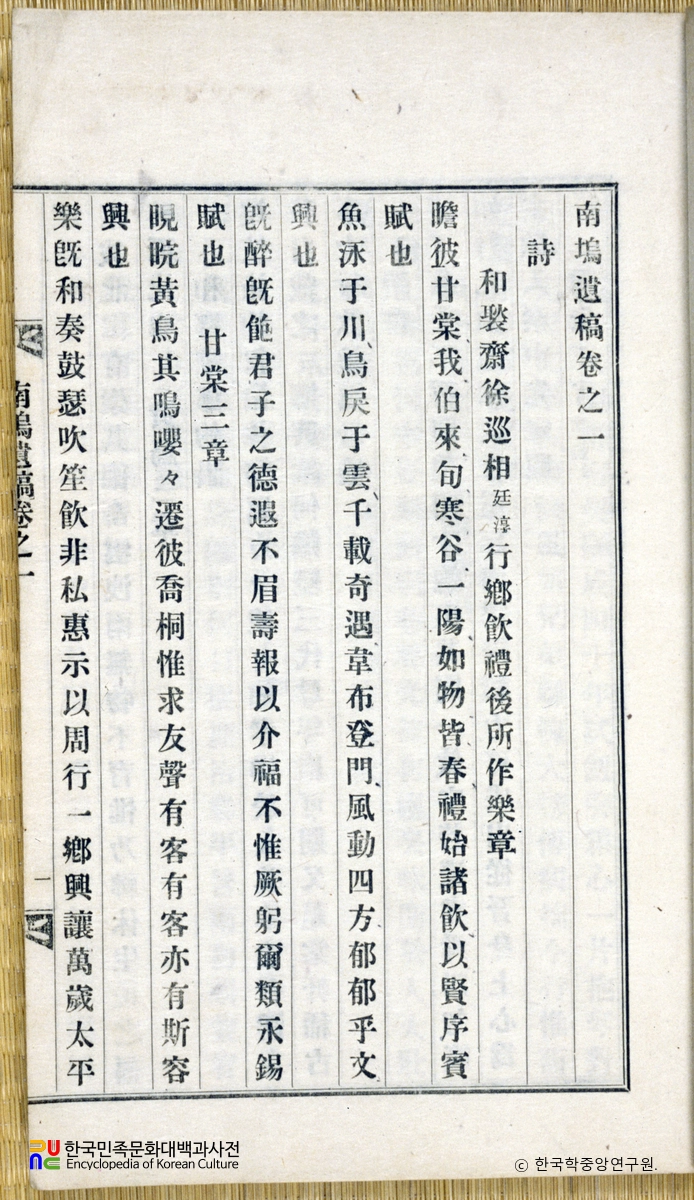 南塢遺稿卷之一
詩
和褧齋徐巡相廷淳行鄕飮禮後所作樂章
瞻彼甘棠我伯來旬寒谷一陽如物皆春禮始諸飮以賢序賓
賦也
魚泳于川鳥戾于雲千載奇遇韋布登門風動四方郁郁乎文
興也
旣醉旣飽君子之德遐不眉壽報以介福不惟厥躬爾類永錫
賦也 甘棠三章
睍睆黃鳥其鳴嚶々遷彼喬桐惟求友聲有客有客亦有斯容
興也
樂旣和奏鼓瑟吹笙飮非私惠示以周行一鄕興讓萬歲太平
南塢遺稿卷之一
一
한국민족문화대백과사전
Encyclopedia of Korean Culture
ⓒ 한국학중앙연구원.